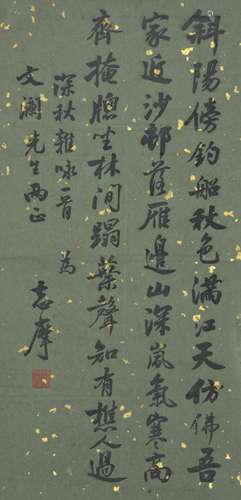 斜陽傍釣船秋色滿江天仿佛吾
家近沙邨落雁邊山深嵐氣寒高
齋掩牕坐林间蹋葉聲知有樵人過
深秋雜咏一首 為
文瀾先生两正
志摩